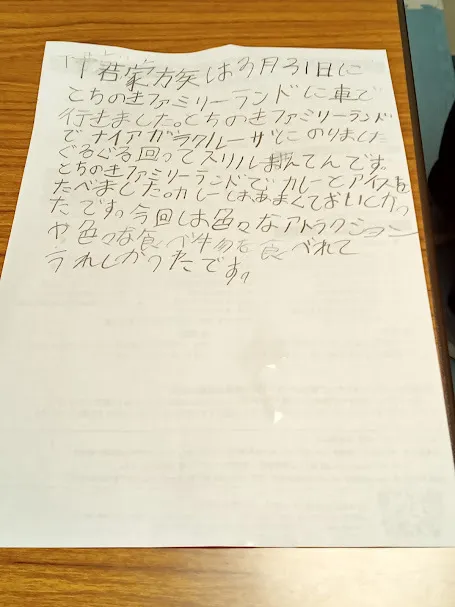 家族は3月31日に
とちのきファミリーランドに車で
行きました。とちのきファミリーランド
でナイアガラクルーザにのりました
ぐるぐる回ってスリルまんてんです。
とちのきファミリーランドでカレーとアイスを
たべました。カレーはあまくておいしかっ
たです。今回は色々なアトラクション
や色々な食べ物を食べれて
うれしかったです。